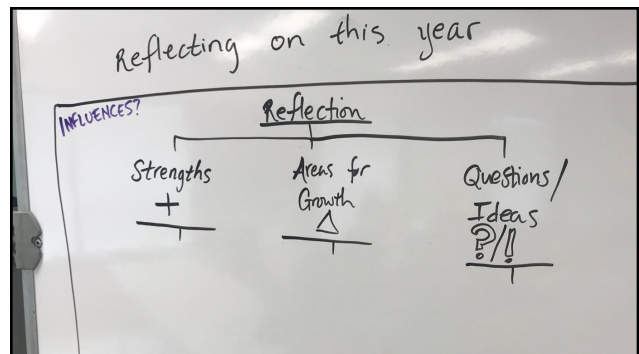 Reflecting on this year
INFLUENCES?
Reflection
Strengths
+
Areas for
Growth
△
Questions/
Ideas
?/!